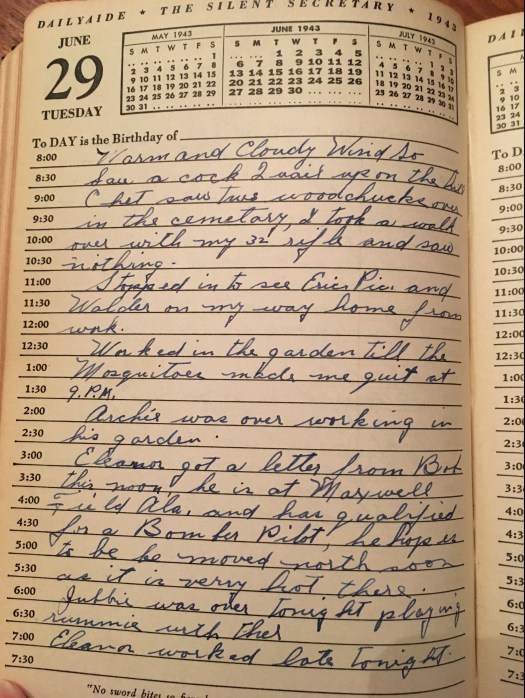 DAILYAIDE ★ THE SILENT SECRETARY ★ 1943
JUNE
29
TUESDAY
MAY 1943
S M T W T F S
.. .. .. .. .. .. 1
2 3 4 5 6 7 8
9 10 11 12 13 14 15
16 17 18 19 20 21 22
23 24 25 26 27 28 29
30 31 .. .. .. .. ..
JUNE 1943
S M T W T F S
.. .. 1 2 3 4 5
6 7 8 9 10 11 12
13 14 15 16 17 18 19
20 21 22 23 24 25 26
27 28 29 30 .. .. ..
JULY 1943
S M T W T F S
.. .. .. .. 1 2 3
4 5 6 7 8 9 10
11 12 13 14 15 16 17
18 19 20 21 22 23 24
25 26 27 28 29 30 31
To DAY is the Birthday of
8:00 Warm and Cloudy Wind So
8:30 Saw a cock Quail up on the
9:00 Chet saw two woodchucks over
9:30 in the cemetary, I took a walk
10:00 over with my 32 rifle and saw
10:30 nothing.
11:00 Stopped in to see Eric, and
11:30 Walder on my way home from
12:00 work.
12:30 Worked in the garden till the
1:00 Mosquitoes made me quit at
1:30 9. P.M.
2:00 Archie was over working in
2:30 his garden.
3:00 Eleanor got a letter from Bob
3:30 this noon, he is at Maxwell
4:00 Field Ala, and has qualified
4:30 for a Bomber Pilot, he hopes
5:00 to be be moved north soon
5:30 as it is verry hot there.
6:00 Jubbie was over tonight playing
6:30 rummie with
7:00 Eleanor worked late tonight.
7:30
"No sword bites so